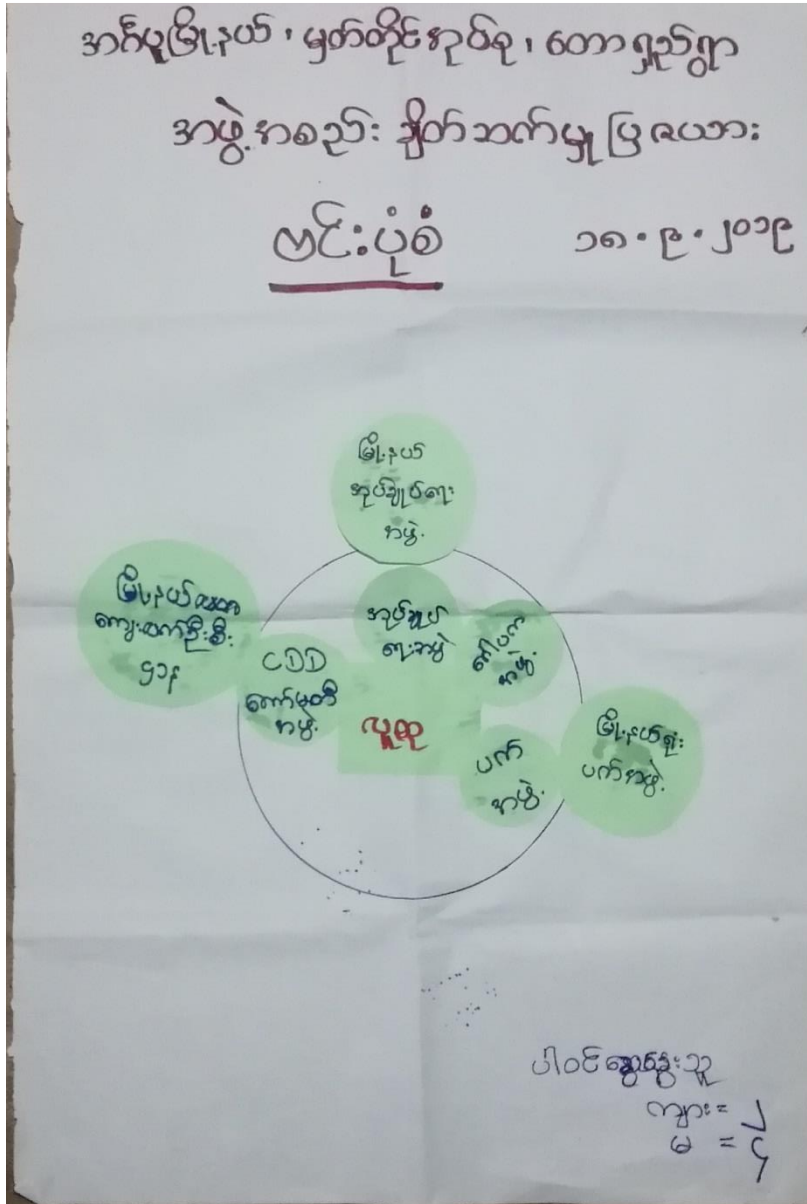 အင်္ဂပူမြို့နယ်၊ မှတ်တိုင်အုပ်စု၊ တောရှည်ရွာ
အဖွဲ့အစည်း ချိတ်ဆက်မှုပြဇယား
ဗင်းပုံစံ ၁၈.၉.၂၀၁၉
မြို့နယ်
အုပ်ချုပ်ရေး
အဖွဲ့
မြို့နယ်
ကျေးလက်ဦးစီး
ဌာန
အုပ်ချုပ်
ရေးအဖွဲ့
အဖွဲ့
CDD
ကော်မတီ
အဖွဲ့
လူထု
ပက်
အဖွဲ့
မြို့နယ်
ပက်အဖွဲ့
ပါဝင်ဆွေးနွေးသူ
ကျား = ၂
မ = ၄